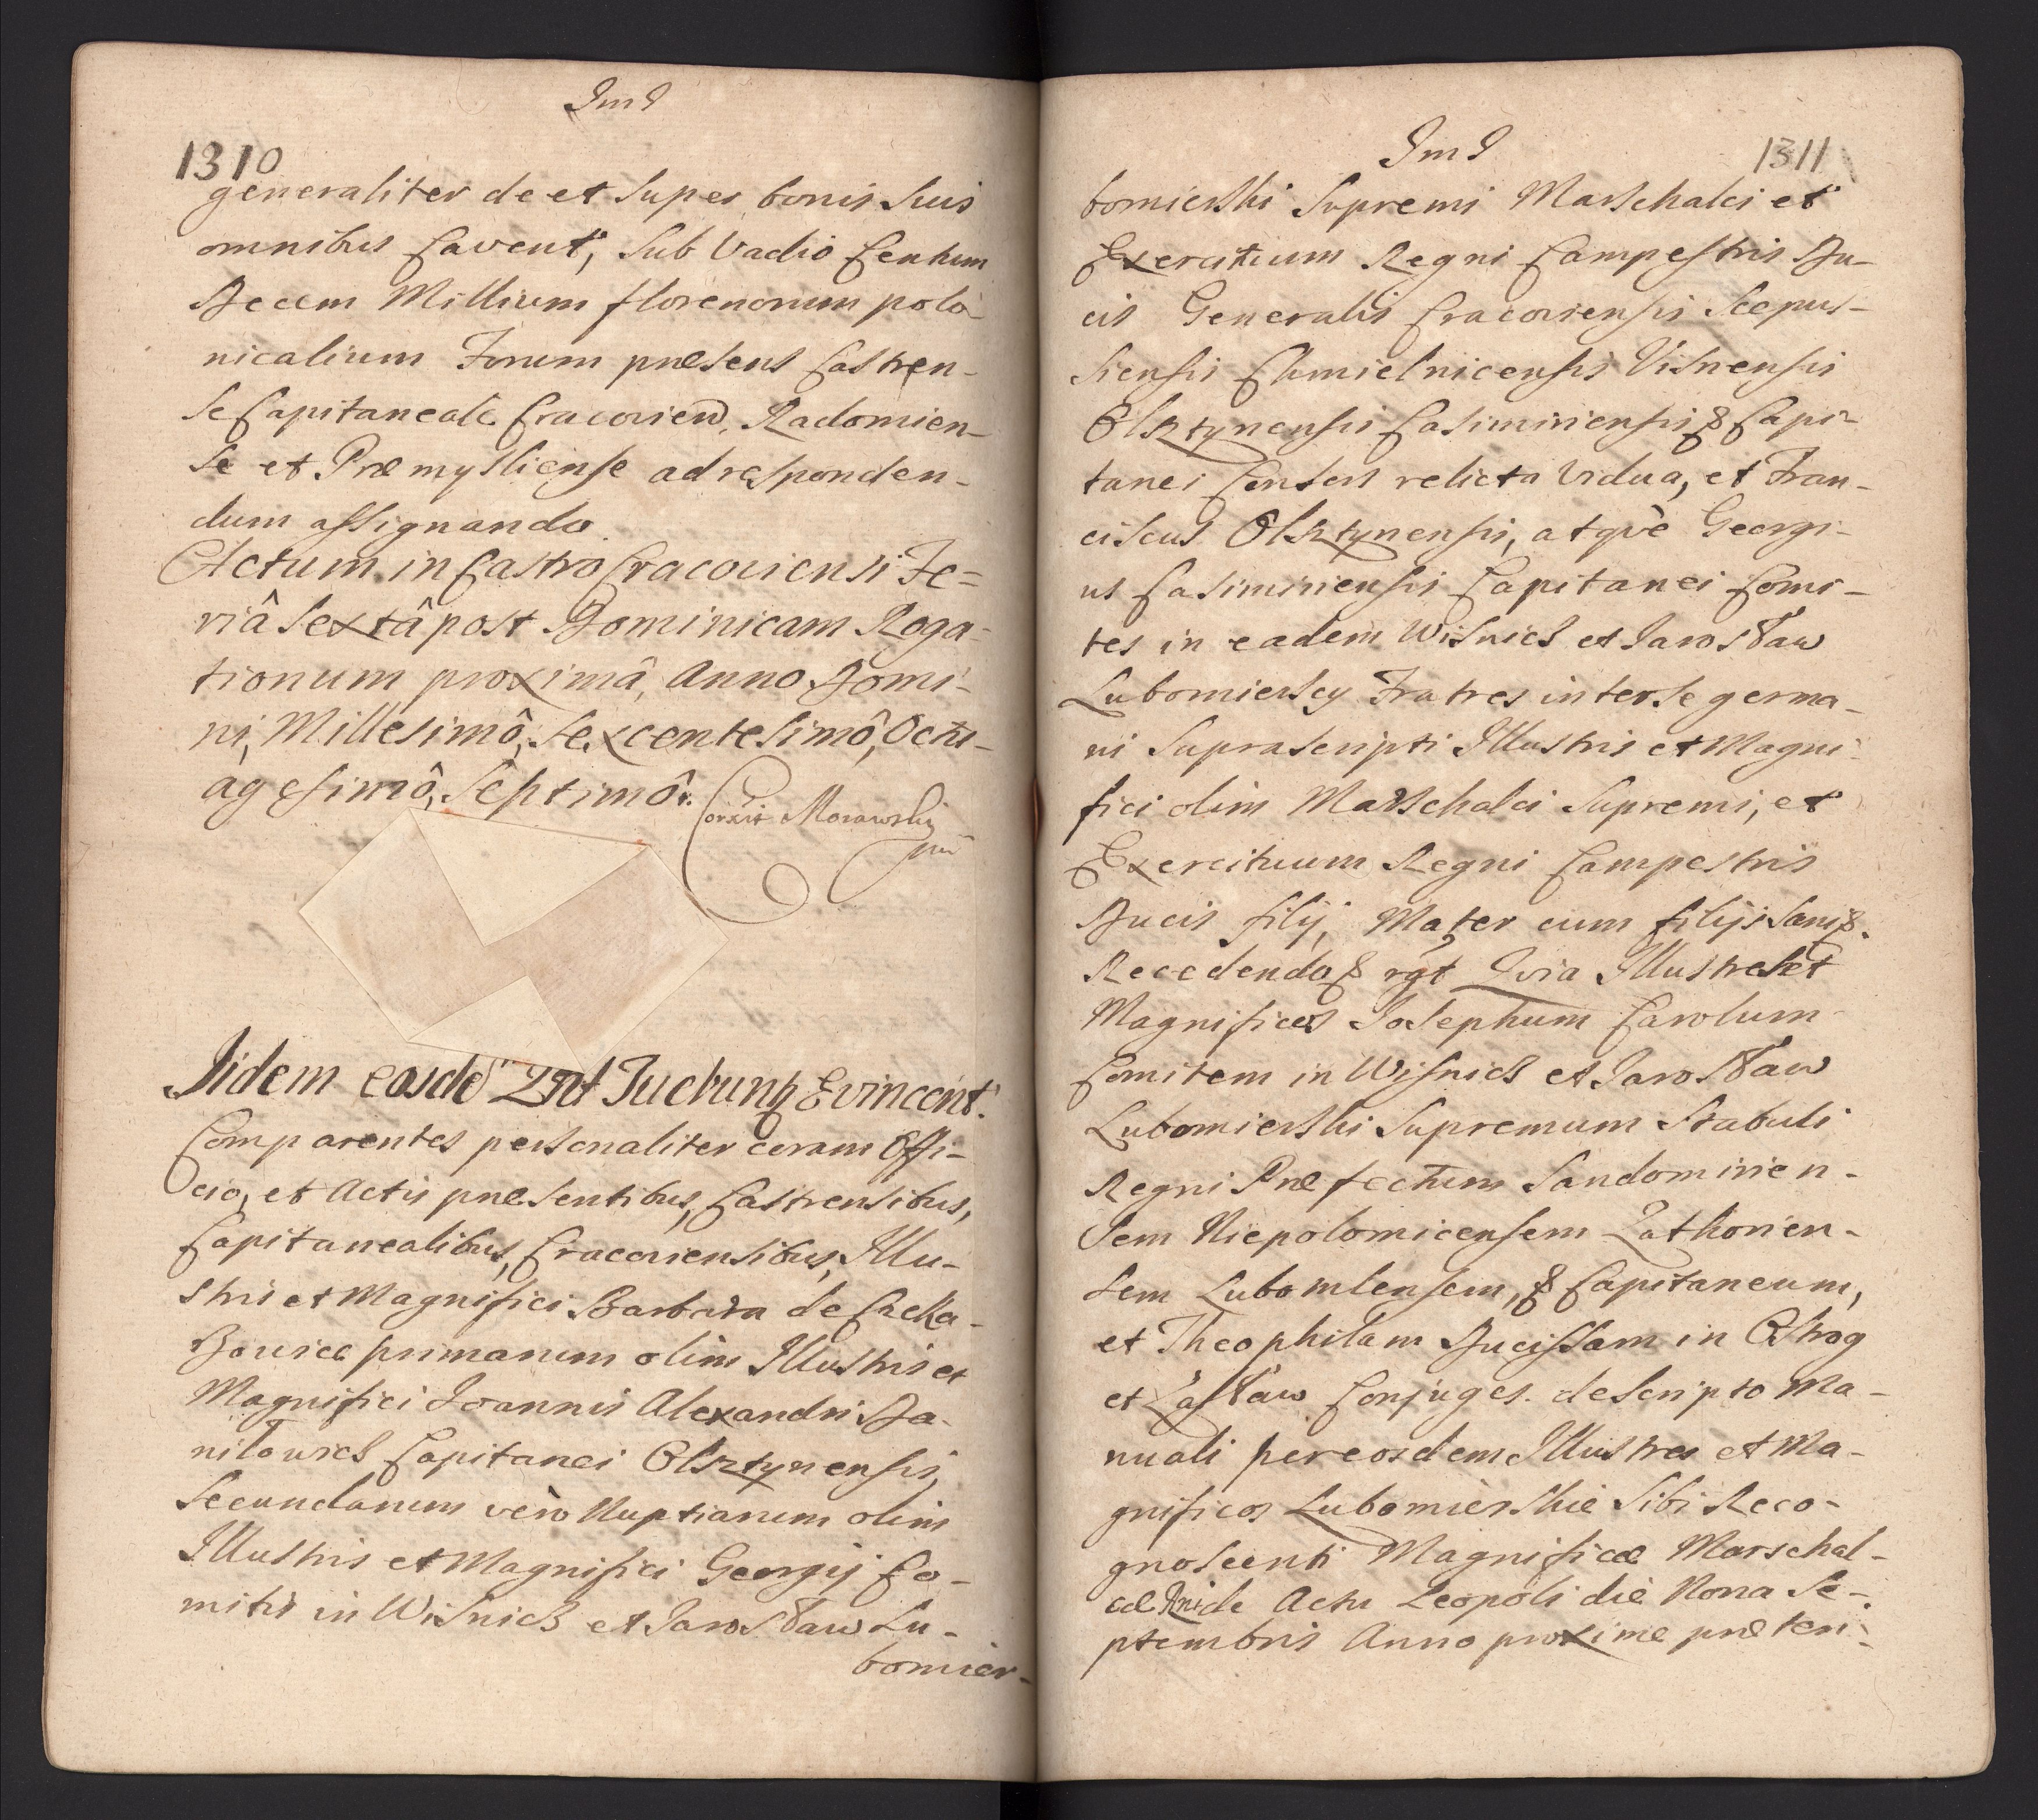 ImJ
1310
generaliter de et super bonis suis
omnibus Cavent, sub Vadio Centum
Decem Millium florenorum polo-
nicalium Forum præsens Castren-
se Capitaneale Cracovien. Radomien-
se et Præmysliense ad responden-
dum assignando.
Actum in Castro Cracoviensi Fe=
riâ Sextâ post Dominicam Roga-
tionum proximâ, Anno Domi-
ni, Millesimô, Sexcentesimô, Octu-
agesimô, Septimô.
Corxit Morawski
mp
Iidem eosdē Inscribunt Evincent.
Comparentes personaliter coram Offi-
cio, et Actis præsentibus, Castrensibus,
Capitanealibus, Cracoviensibus, Illu-
stris et Magnifici Barbara de
primarum olim Illustris et
Magnifici Ioannis Alexandri Da-
niłowicz Capitanei Olsztynensis,
Secundarum verò Nuptiarum olim
Illustris et Magnifici Georgij Co-
mitis in Wisnicz et Jarosław Lu-
bomier-
ImJ
1311
bomierski Supremi Marschalci et
Exercituum Regni Campestris Du-
cis Generalis Cracoviensis Scepus-
siensis Chmielnicensis Visnensis
Olsztynensis Casimiriensis & Capi-
tanei Consors relicta Vidua, et Fran-
ciscus Olsztynensis, atqvè Georgi-
us Casimiriensis Capitanei Comi-
tes in eadem Wisnicz et Jarosław
Lubomierscy Fratres inter se germa-
ni Suprascripti Illustris et Magni-
fici olim Marschalci Supremi, et
Exercituum Regni Campestris
Ducis filij, Mater cum filijs Sani &.
Recedendo & rgt Qvia Illustres et
Magnificos Iosephum Carolum
Comitem in Wisnicz et Jarosław
Lubomierski Supremum Stabuli
Regni Præfectum Sandomirien-
sem Niepolomicensem Zathorien-
sem Lubomlensem, & Capitaneum,
et Theophilam Ducissam in Ostrog
et Zasław Conjuges. de scripto Ma-
nuali per eosdem Illustres et Ma-
gnificos Lubomierskie Sibi Reco-
gnoscenti Magnificæ Marschal-
cæ Rni de Actu Leopoli die Nona Se-
ptembris Anno proxime præteri-